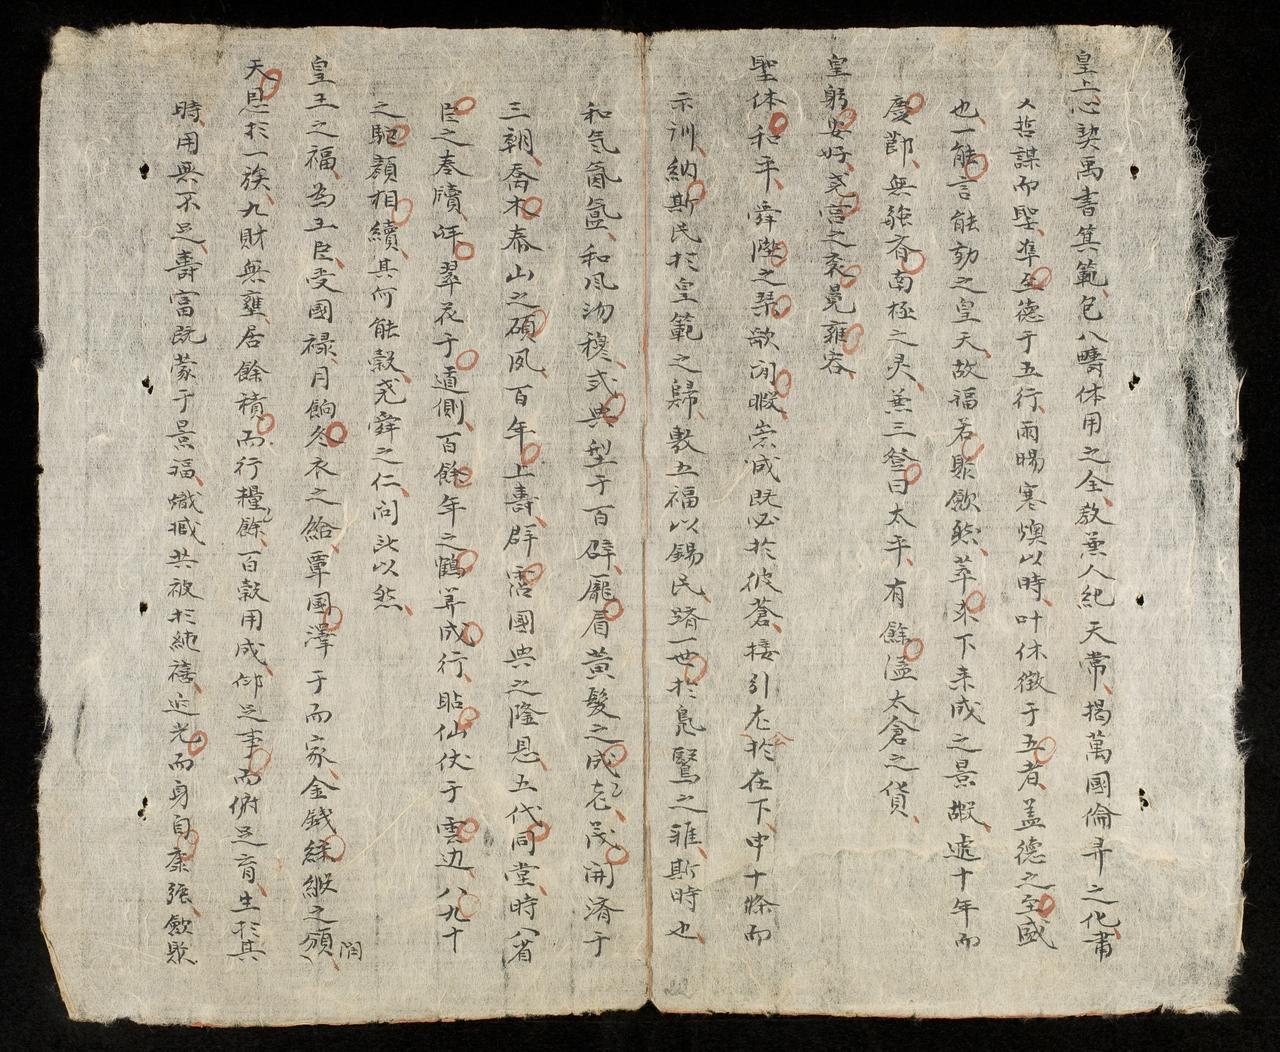 皇上心契禹書箕範包八疇体用之全敘並人紀天常揭萬國倫彛之化肅
乂哲謀而聖準至德于五行雨暘寒燠以時叶休徵于五者盖德之至盛
也一能言能効之皇天故福若聚歛然萃來下来成之景嘏迓十年而
慶節無強齐南極之灵並三登曰太平有餘溢太倉之貨
皇躬安好尧宫之衮晃雍容
聖体和平舜陛之琴歌閒暇崇成既必於彼蒼接引在於在下申十條而
示訓納斯民於皇範之歸敷五福以錫民躋一世於鳧鷖之雅斯時也
和気氤氳和风沕穆式典型于百辟龐眉黄髮之成老茂開済于
三朝喬木泰山之碩夙百年上壽群霑國典之隆恩五代同堂時入省
臣之奏牘迓翠花于道側百餘年之鶴筭成行瞻仙仗于雲边八九十
之駝顏相續其何能穀尧舜之仁问此以然
皇王之福為王臣受國禄月餉冬衣之給覃國澤于而家金銭絲緞之頒
閏
天恩於一族九財無壅居餘積而行糧餘百穀用成仰足事而俯足育生於其
時用無不足壽富既蒙于景福熾臧共被於純禧近光而身自康強歛聚